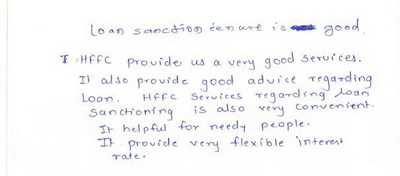 Loan sanction tenure is good.
I HFFC provide us a very good services.
It also provide good advice regarding
Loan. HFFC Services regarding loan
Sanctioning is also very convenient.
It helpful for needy people.
It provide very flexible interest
rate.